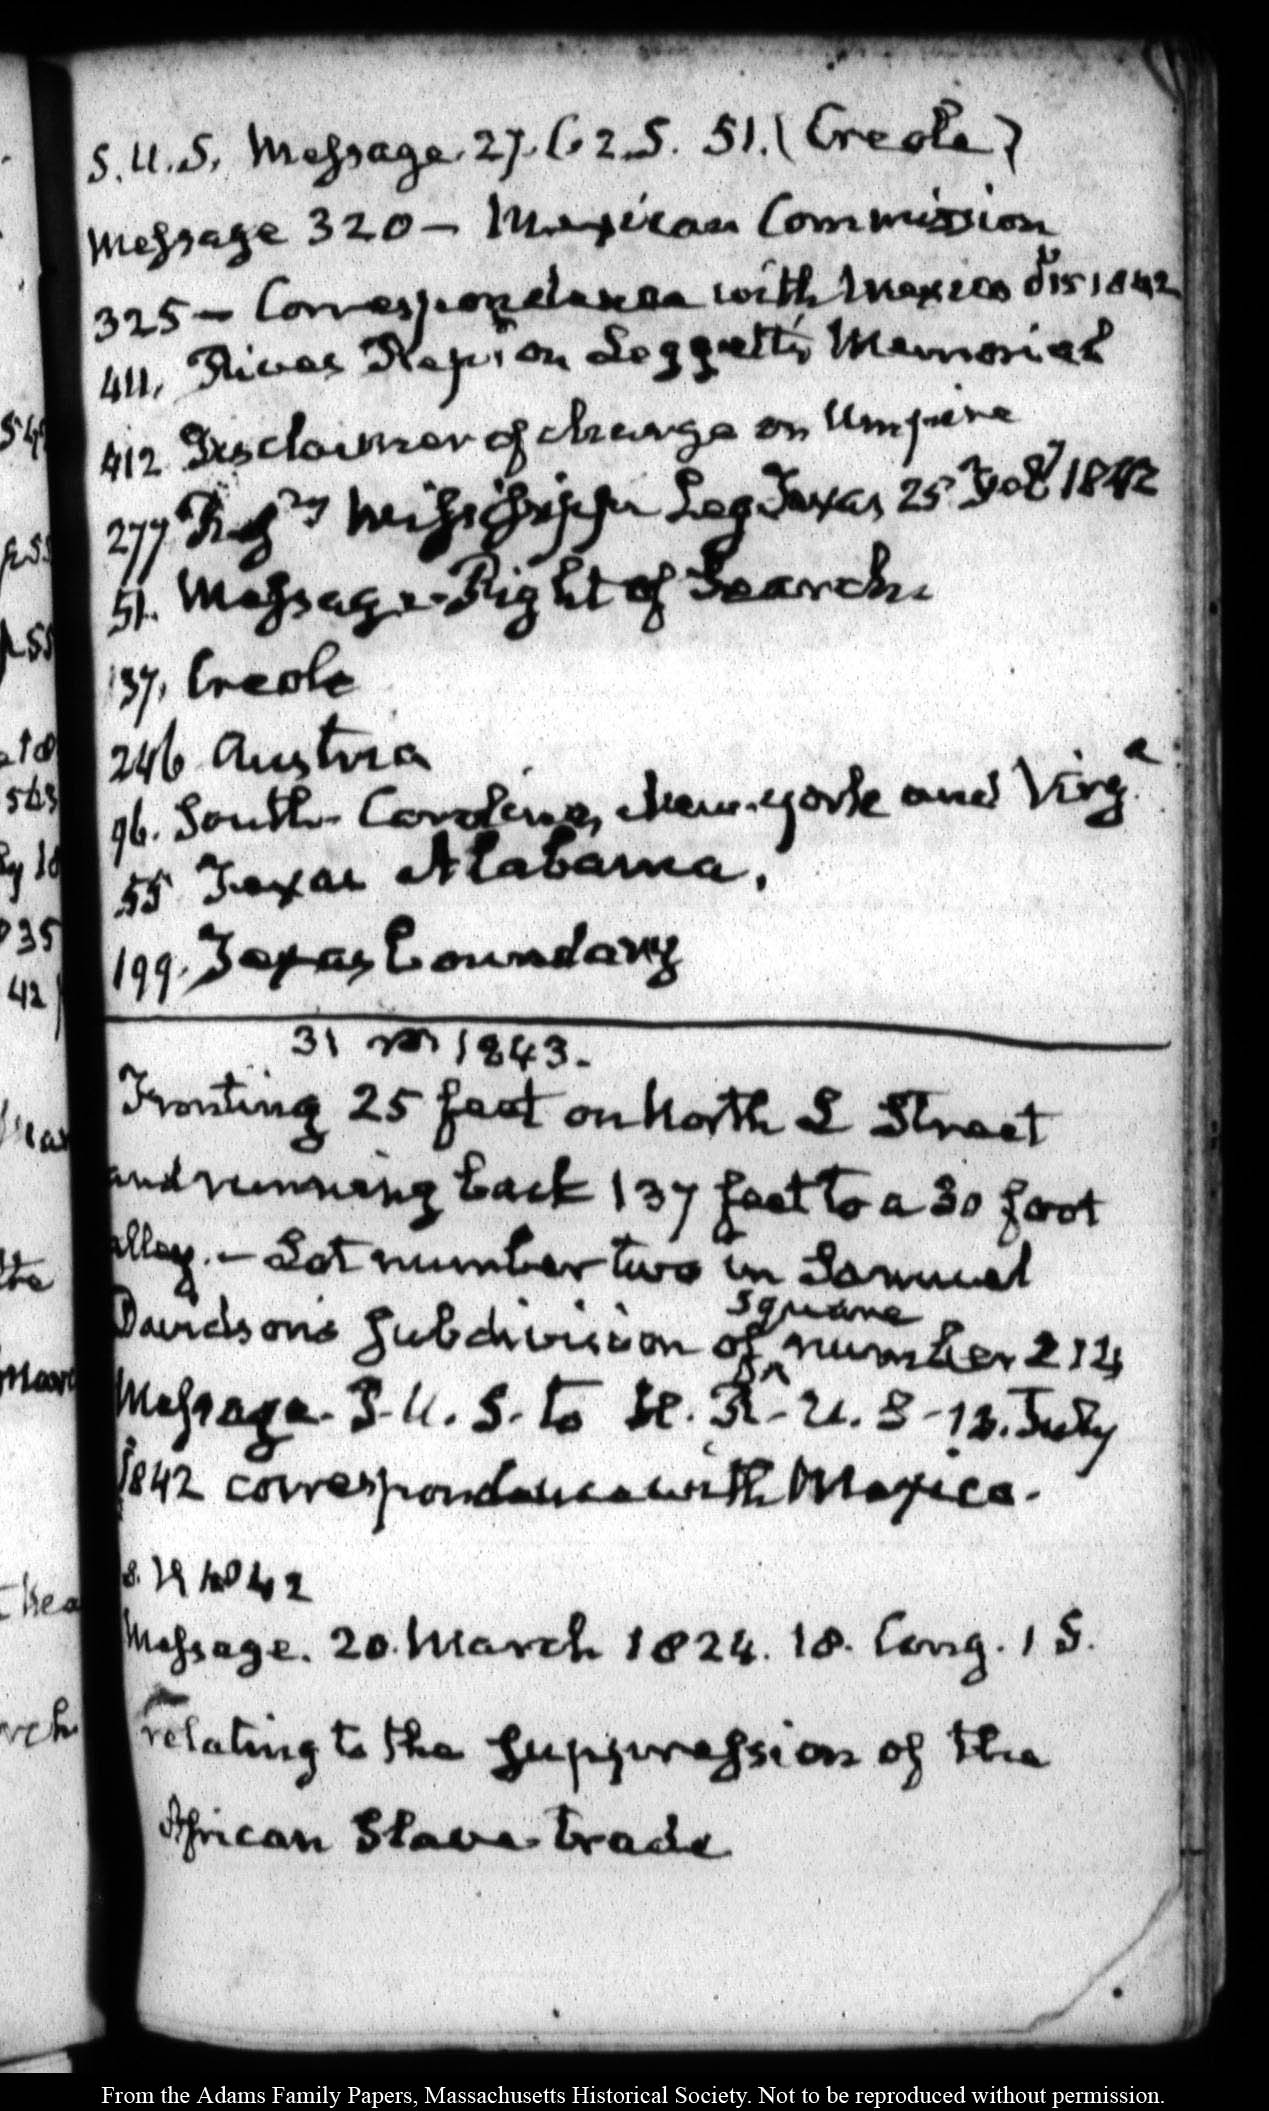 S.U.S. Message. 27. C. 2. S. 51. (Creole)
Message 320 — Mexican Commission
325 — Correspondence with Mexico 1842
411. Rives Rep. on Leggett's Memorial
412 Disclaimer of charge on Umpire
277 Missisippi Leg Texas 25 1842
51. Message - Right of Search.
137. Creole
246 Austria
96. South-Carolina, New-York and Virgª
55 Texas Alabama.
199. Texas boundary
31 1843.
Fronting 25 feet on North L Street
and running back 137 feet to a 30 foot
alley. — Lot number two in Samuel
Davidson's Subdivision of square number 214
Message. P. U. S. to H. R. U. S - 13. July
1842 correspondence with Mexico.
42
Message. 20. March 1824. 18. Cong. 1 S.
relating to the Suppression of the
African Slave-trade
54
55
42
35
From the Adams Family Papers, Massachusetts Historical Society. Not to be reproduced without permission.